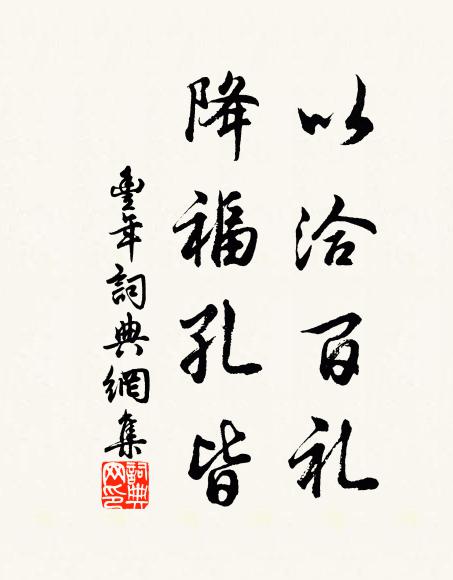 以洽百礼
降福孔皆
豐年詞典網集
詞典网印